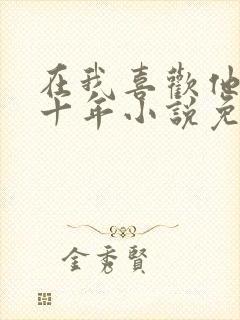 在我喜歡他
十年小說免
金秀賢